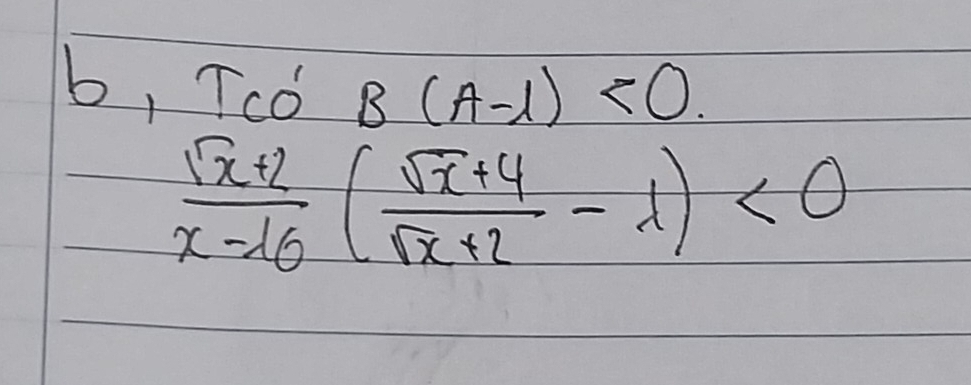 b, Tcó B (A-1) < 0.
(√x+2)/(x-16) ((√x+4)/(√x+2) - 1) < 0